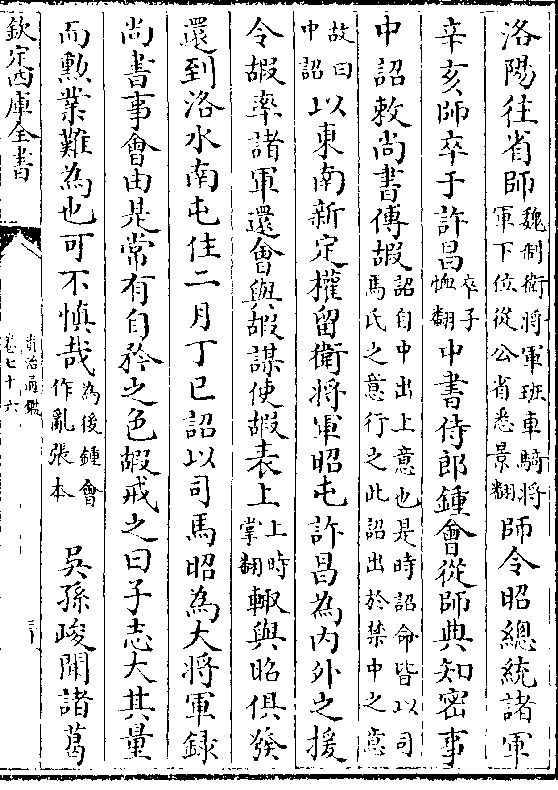 洛陽往省師魏制衛將軍班車騎將軍下位從公省悉景翻師令昭總統諸軍
辛亥師卒于許昌卒子恤翻中書侍郎鍾會從師典知密事
中詔敕尚書傅嘏詔自中出上意也是時詔命皆以司馬氏之意行之此詔出於禁中之意
故曰中詔以東南新定權留衛將軍昭屯許昌為內外之援
令嘏率諸軍還會與嘏謀使嘏表上上時掌翻輙與昭俱發
還到洛水南屯住二月丁巳詔以司馬昭為大將軍錄
尚書事會由是常有自矜之色嘏戒之曰子志大其量
而勲業難為也可不慎哉為後鍾會作亂張本 吳孫峻聞諸葛
欽定四庫全書
資治通鑑
卷七十六